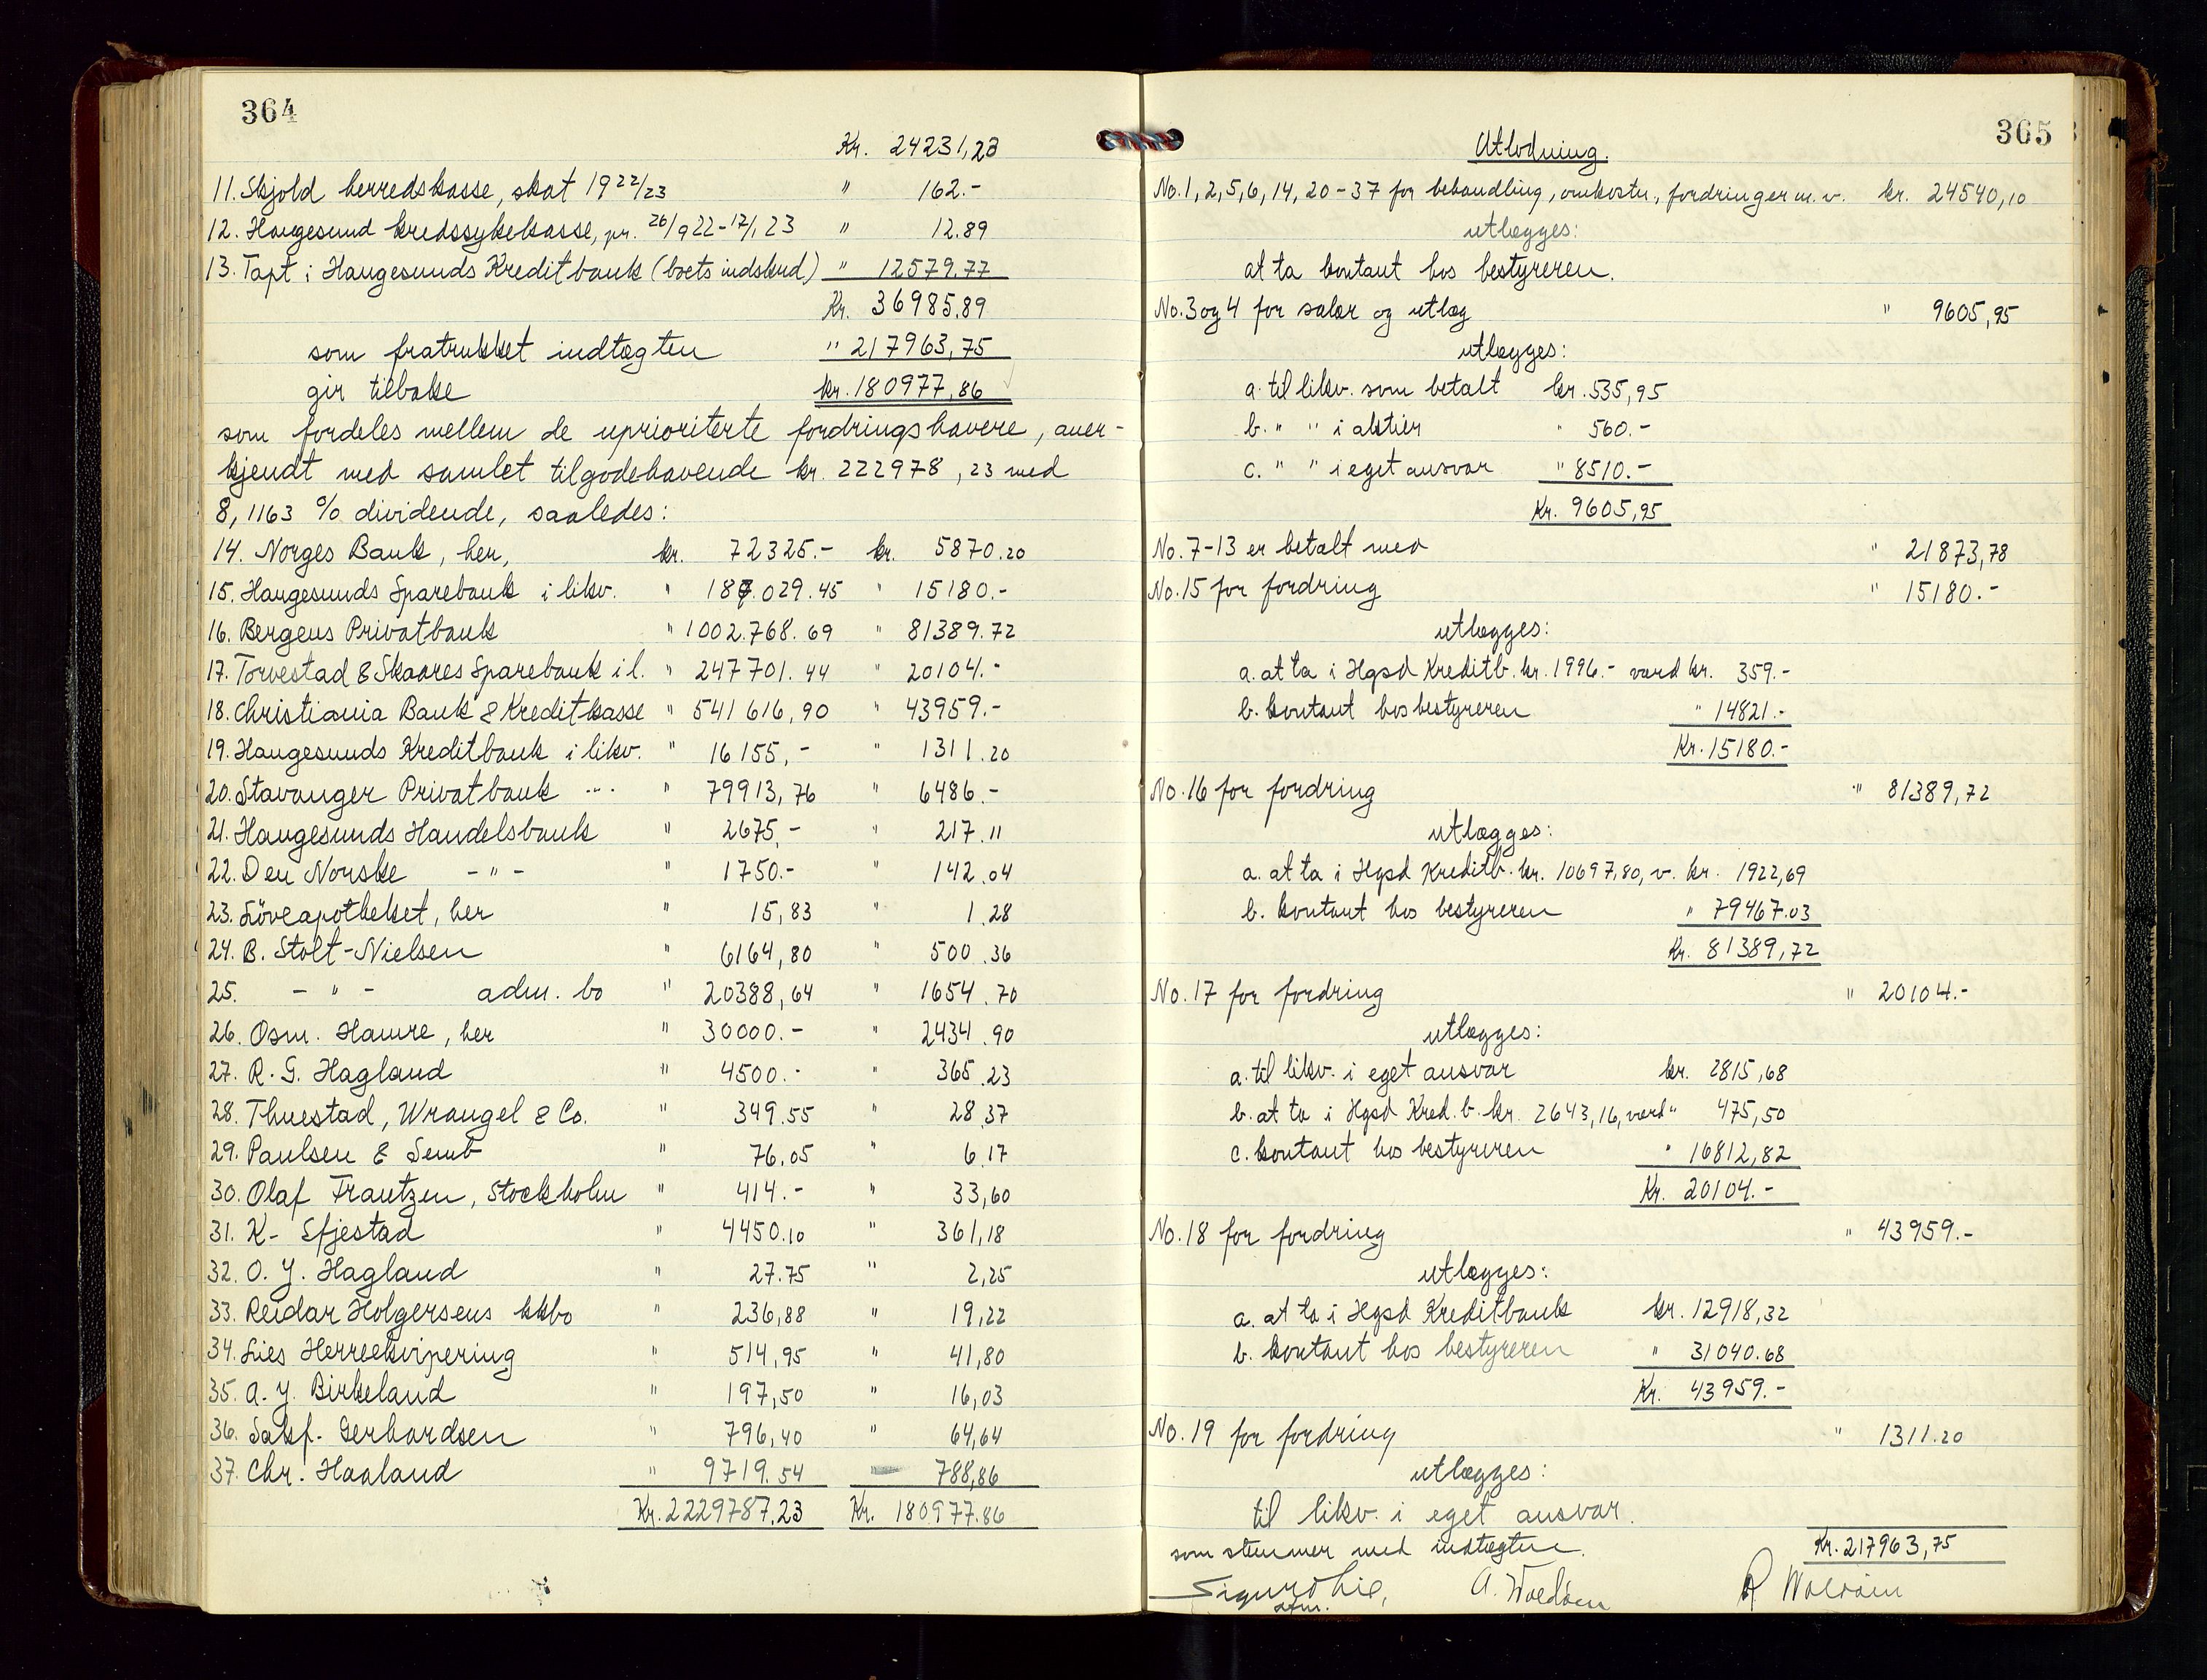 364
Kr. 24231,23
11. Skjold herredskasse, skat 1922/23 " 162.-
12. Haugesund kredssykekasse, pr. 26/9 22-17/1 23 " 12.89
13. Tapt i Haugesunds Kreditbank (boets indskud) " 12579.77
Kr. 36985.89
som fratrukket indtægten " 217963,75
gir tilbake kr. 180977,86
som fordeles mellem de uprioriterte fordringshavere, aner-
kjendt med samlet tilgodehavende kr. 222978,23 med
8,1163 % dividende, saaledes:
14. Norges Bank, her, kr. 72325.- kr. 5870.20
15. Haugesunds Sparebank i likv. " 187.029.45 " 15180.-
16. Bergens Privatbank " 1002.768.69 " 81389.72
17. Torvestad & Skaares Sparebank i l. " 247701.44 " 20104.-
18. Christiania Bank & Kreditkasse " 541616,90 " 43959.-
19. Haugesunds Kreditbank i likv. " 16155,- " 1311.20
20. Stavanger Privatbank -"- " 79913,76 " 6486.-
21. Haugesunds Handelsbank " 2675,- " 217.11
22. Den Norske -"- " 1750.- " 142.04
23. Löveapotheket, her " 15,83 " 1.28
24. B. Stolt-Nielsen " 6164,80 " 500.36
25. -"- adm. bo " 20388,64 " 1654.70
26. Osm. Hamre, her " 30000.- " 2434.90
27. R. G. Hagland " 4500.- " 365.23
28. Thuestad, Wrangel & Co. " 349.55 " 28.37
29. Paulsen & Semb " 76.05 " 6.17
30. Olaf Frantzen, Stockholm " 414.- " 33,60
31. K. Sfjestad " 4450.10 " 361,18
32. O. J. Hagland " 27.75 " 2,25
33. Reidar Holgersens kkbo " 236,88 " 19,22
34. Lies Herreekvipering " 514,95 " 41,80
35. A. J. Birkeland " 197,50 " 16,03
36. Sakf. Gerhardsen " 796,40 " 64,64
37. Chr. Haaland " 9719.54 788,86
Kr. 2229787.23 Kr. 180977.86
365
Utlodning.
No. 1, 2, 5, 6, 14, 20-37 for behandling, omkostn., fordringer m. v. kr. 24540,10
utlægges:
at ta kontant hos bestyreren.
No. 3 og 4 for salær og utlæg " 9605,95
utlægges:
a. til likv. som betalt kr. 535,95
b. " " i aktier " 560.-
c. " " i eget ansvar " 8510.-
Kr. 9605,95
No. 7-13 er betalt med " 21873,78
No. 15 for fordring " 15180.-
utlægges:
a. at ta i Hgsd Kreditb. kr. 1996.- værd kr. 359.-
b. kontant hos bestyreren " 14821.-
Kr. 15180.-
No. 16 for fordring " 81389,72
utlægges:
a. at ta i Hgsd Kreditb. kr. 10697,80, v. kr. 1922,69
b. kontant hos bestyreren " 79467.03
Kr. 81389,72
No. 17 for fordring " 20104.-
utlægges:
a. til likv. i eget ansvar kr. 2815,68
b. at ta i Hgsd Kred.b. kr. 2643,16, værd " 475,50
c. kontant hos bestyreren " 16812,82
Kr. 20104.-
No. 18 for fordring " 43959.-
utlægges:
a. at ta i Hgsd Kreditbank kr. 12918,32
b. kontant hos bestyreren " 31040.68
Kr. 43959.-
No. 19 for fordring " 1311.20
utlægges:
til likv. i eget ansvar.
som stemmer med indtægten. Kr. 217963,75
Sigurd Lie,